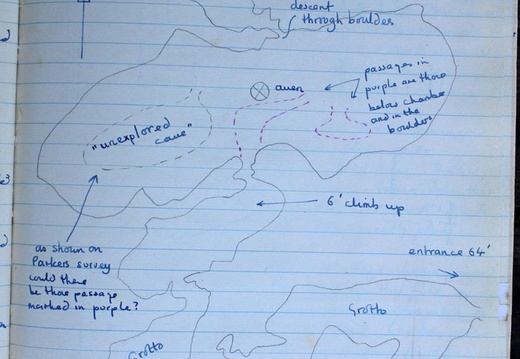 descent
through boulders
aven
passages in
purple are those
below chamber
and in the
boulders
"unexplored
cave"
6' climb up
as shown on
Parkers survey
could these
be those passage
marked in purple?
entrance 64'
Grotto
Grotto